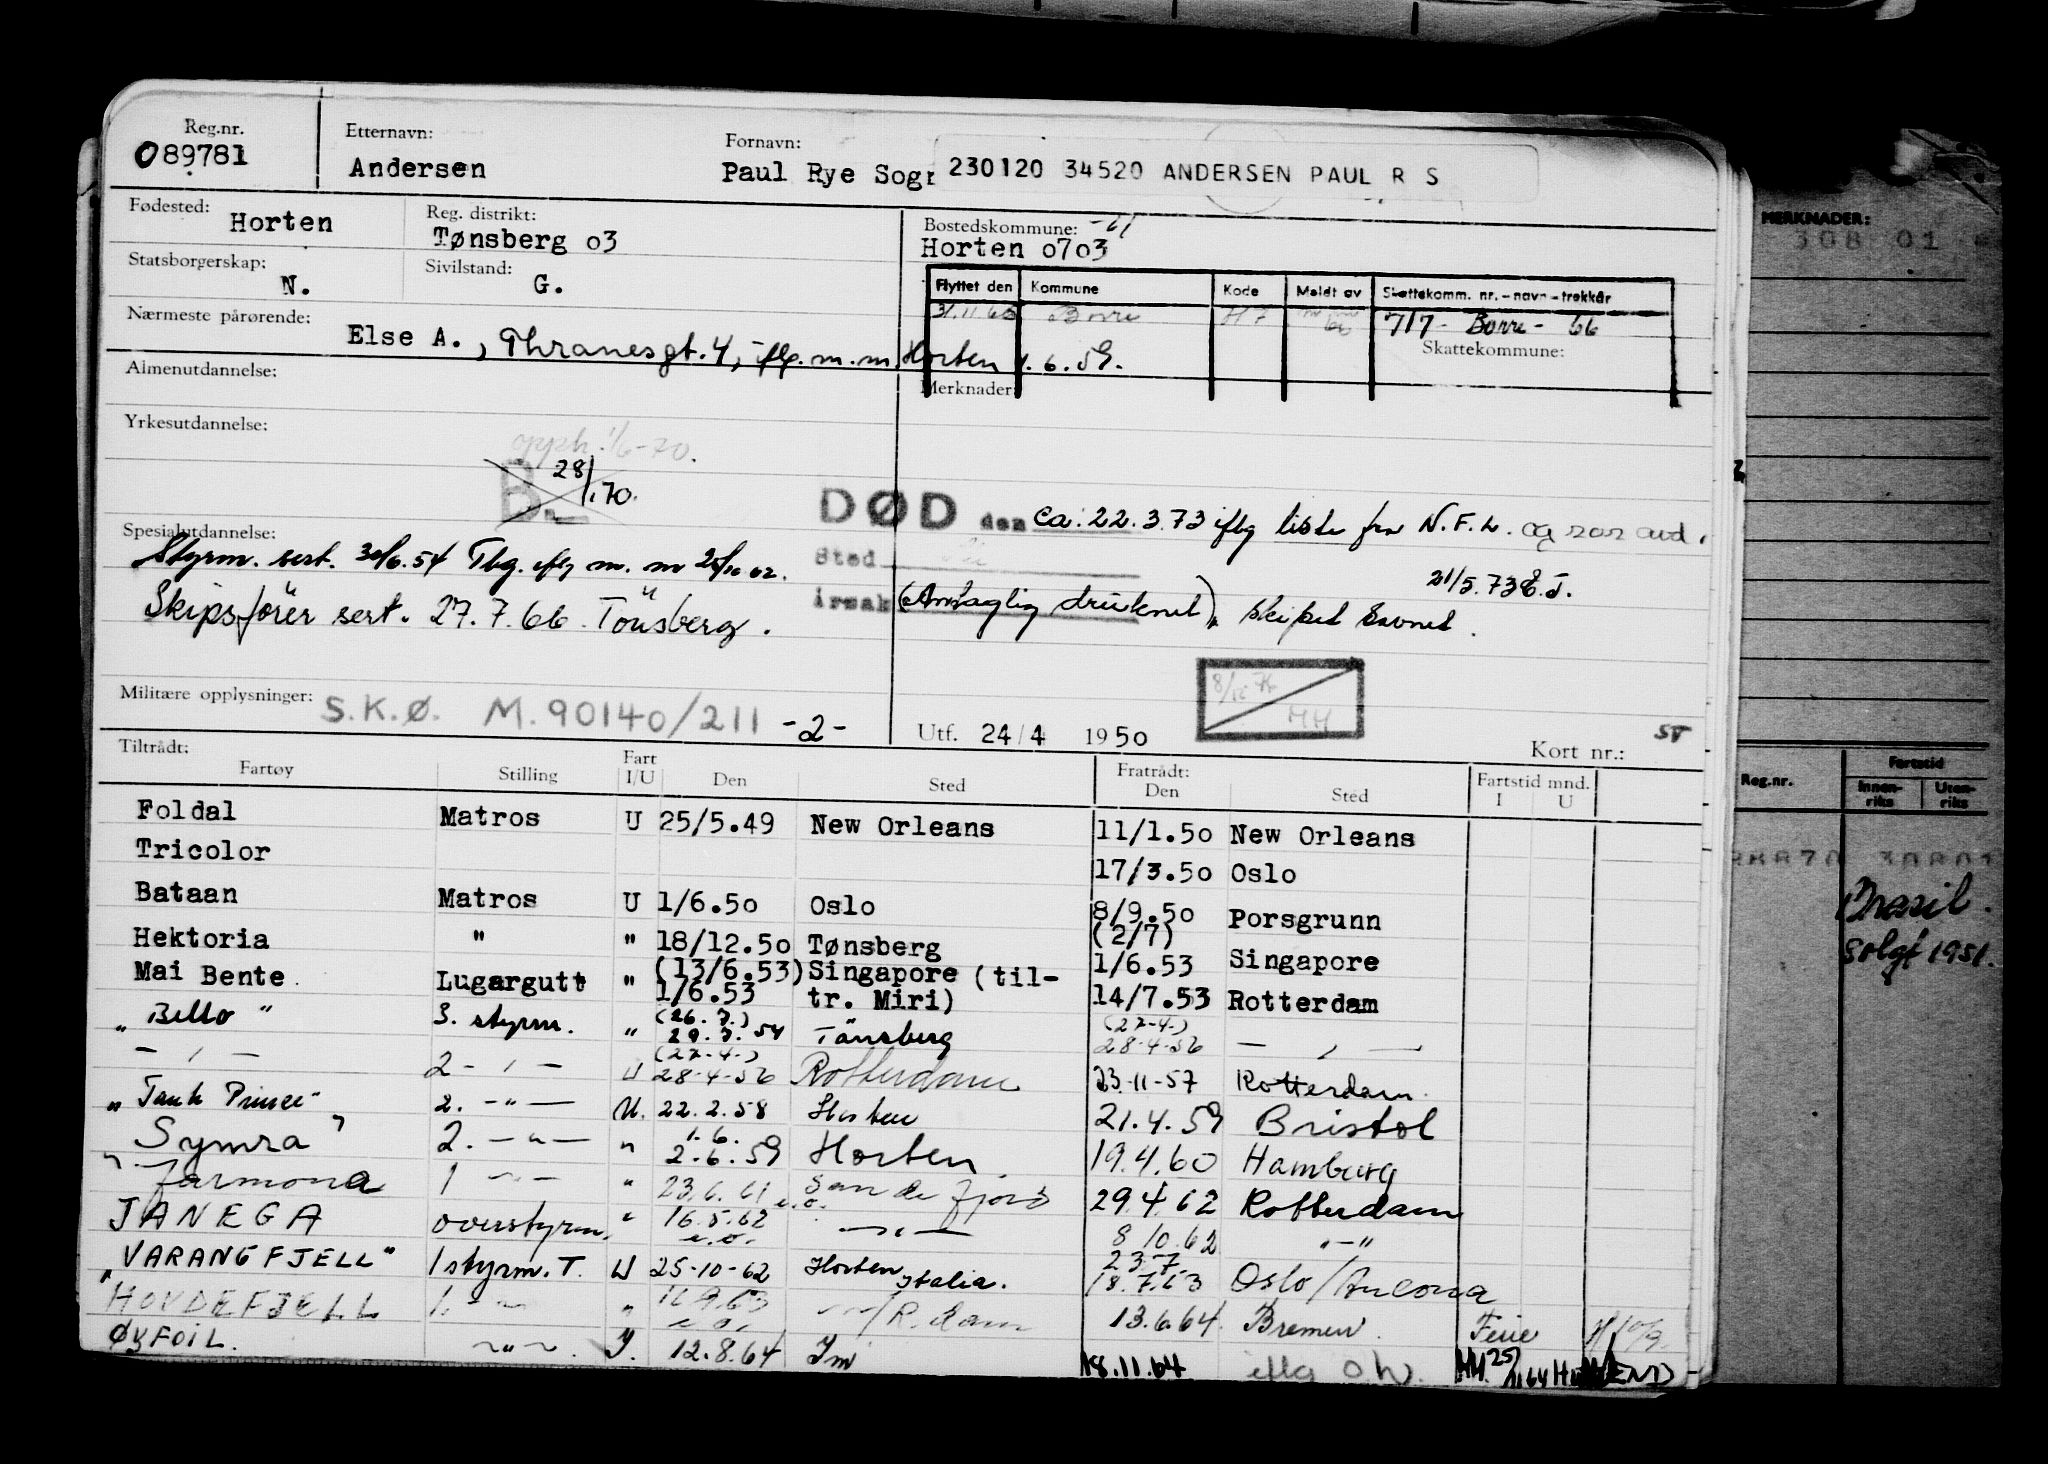 Reg.nr. Etternavn: Fornavn:
089781 Andersen Paul Rye Sogr 230120 34520 ANDERSEN PAUL R S
Fødested: Horten Reg. distrikt: Tønsberg 03 Bostedskommune: -61
Horten 0703
Statsborgerskap: N. Sivilstand: G.
Flyttet den Kommune Kode Meldt av Skattekomm. nr. - navn - trekkår
Borre 717 - Borre - 66
Skattekommune:
Nærmeste pårørende: Else A., Thranesgt. 4, iflg. m.m. Horten 1.6.59.
Almenutdannelse: Merknader:
Yrkesutdannelse:
opph. 1/6-70.
B. 28/1.70.
DØD den ca. 22.3.73 iflg liste fra N.F.L. og
Spesialutdannelse:
Sted
Styrm. sert. 30/6.54 Tbg. iflg m. m
21/5.73 E.J.
årsak (Antaglig druknet), skipet savnet.
Skipsförer sert. 27.7.66 Tönsberg.
Militære opplysninger: S.K.Ø. M.90140/211 -2- Utf. 24/4 1950 Kort nr.:
Tiltrådt: Fratrådt:
Fartøy Stilling Fart I/U Den Sted Den Sted Fartstid mnd. I U
Foldal Matros U 25/5.49 New Orleans 11/1.50 New Orleans
Tricolor 17/3.50 Oslo
Bataan Matros U 1/6.50 Oslo 8/9.50 Porsgrunn
(2/7)
Hektoria " " 18/12.50 Tønsberg 1/6.53 Singapore
Mai Bente Lugargutt " (13/6.53) Singapore (til-
1/6.53 tr. Miri) 14/7.53 Rotterdam
(26.7.) (27-4-)
" Bello " 3. styrm. " 29.7.54 Tönsberg 28-4-56 — , —
(27-4-)
— , — 2 - , - U 28-4-56 Rotterdam 23-11-57 Rotterdam.
"Tank Prince" 2. -"- U. 22.2.58 Horten 21.4.59 Bristol
1.6.
Symra 2. -"- " 2.6.59 Horten. 19.4.60 Hamburg
"Farmona 1 -"- " 23.6.61 Sandefjord 29.4.62 Rotterdam
e.o.
JANEGA overstyrm. " 16.5.62 -"- 8/10.62 -"-
e.o. 23.7.
"VARANGFJELL" 1 styrm. T. U 25-10-62 Horten Italia. 18.7.63 Oslo/Ancona
"HOVDEFJELL 1. -"- " -"-/R.dam 13.6.64. Bremen. Ferie
e.o.
ØYFOIL. -"-. I. 12.8.64 18.11.64 iflg O.W.
MERKNADER:
308 01
Reg.nr. Fartstid
Innen-riks Uten-riks
30801
Brasil.
solgt 1951.